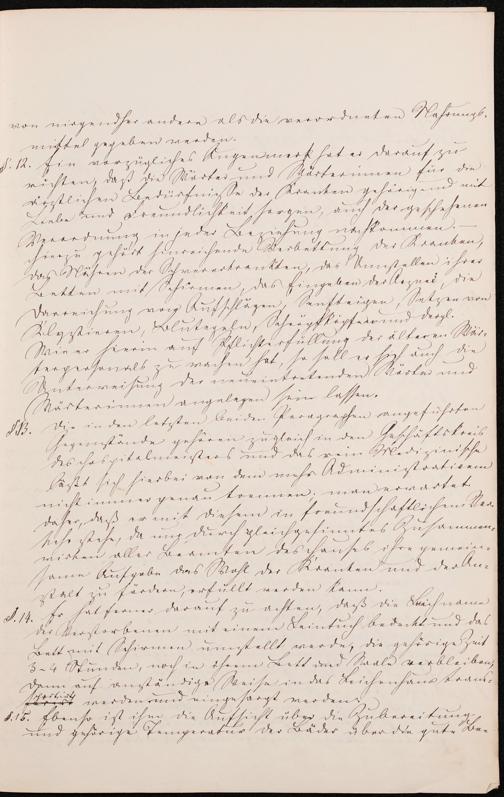 von nirgendher andere als die verordneten Nahrungs-
mittel gegeben werden.
§. 12. Ein vorzügliches Augenmerk hat er darauf zu
richten, daß die Wärter und Wärterinnen für die
ärztlichen Bedürfnisse der Kranken gehörig und mit
Liebe und Freundlichkeit sorgen, auch der geschehenen
Verordnung in jeder Beziehung nachkommen. –
Hierzu gehört hinreichende Verbettung der Kranken,
das Nähren der Schwererkrankten, das Umstellen ihrer
Betten mit Schirmen, das Eingeben der Arznei, die
Darreichung von Aufschlägen, Senfteigen, Setzen von
Klystieren, Blutegeln, Schröpfköpfen und dergl.
Wie er hierin auf Pflichterfüllung des älteren Wär-
terpersonals zu wachen hat, so soll er sich auch die
Unterweisung der neueintretenden Wärter und
Wärterinnen angelegen sein lassen.
§13. Die in den letzten beiden Paragraphen angeführten
Gegenstände gehören zugleich in den Geschäftskreis
des Hospitalmeisters und das rein Medizinische
läßt sich hierbei von dem mehr Administrativen
nicht immer genau trennen; man erwartet
daher, daß er mit diesem in freundschaftlichen Ver-
kehr stehe, da nur durch gleichgesinntes Zusammen-
wirken aller Beamten des Hauses ihre gemein-
same Aufgabe das Wohl der Kranken und der An-
stalt zu fördern, erfüllt werden kann.
§. 14. Er hat ferner darauf zu achten, daß die Leichname
der Verstorbenen mit einem Leintuch bedeckt und das
Bett mit Schirmen umstellt werde, die gehörige Zeit
3-4 Stunden, noch in ihrem Bett und Saale verbleiben,
dann auf anständige Weise in das Leichenhaus trans-
portirt werden und eingesargt werden.
§. 15. Ebenso ist ihm die Aufsicht über die Zubereitung
und gehörige Temperatur der Bäder über die gute Be-